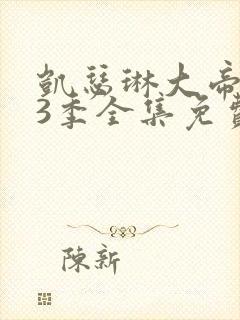 凱瑟琳大帝
3季全集免費
陳新